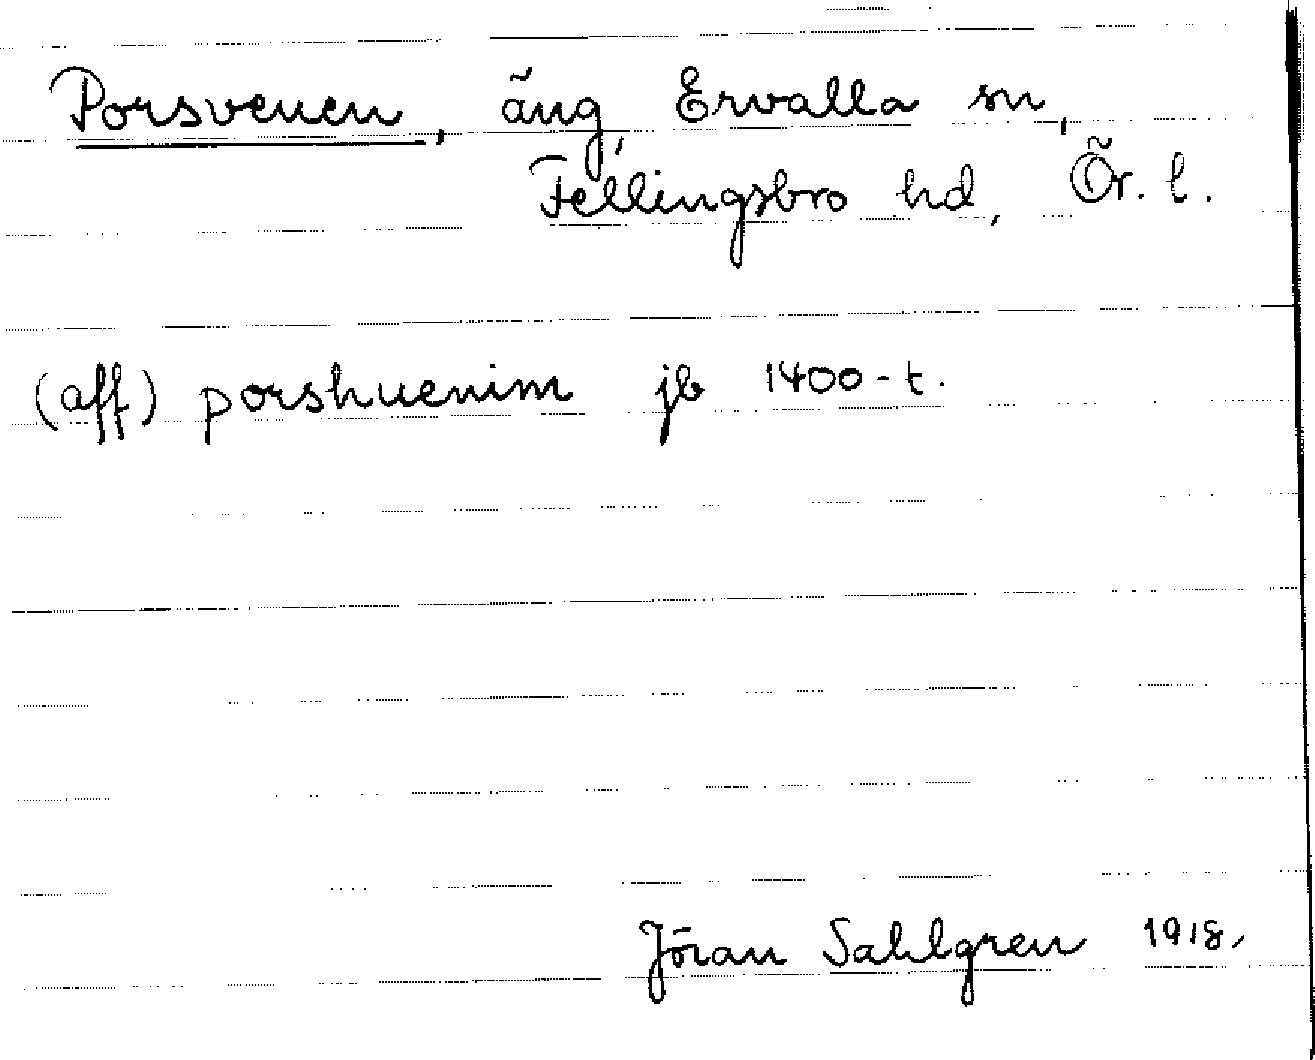 Porsvenen, äng, Ervalla sn,
Fellingsbro hd, Ör. l.
(aff) porshuenim jb 1400-t.
Jöran Sahlgren 1918.